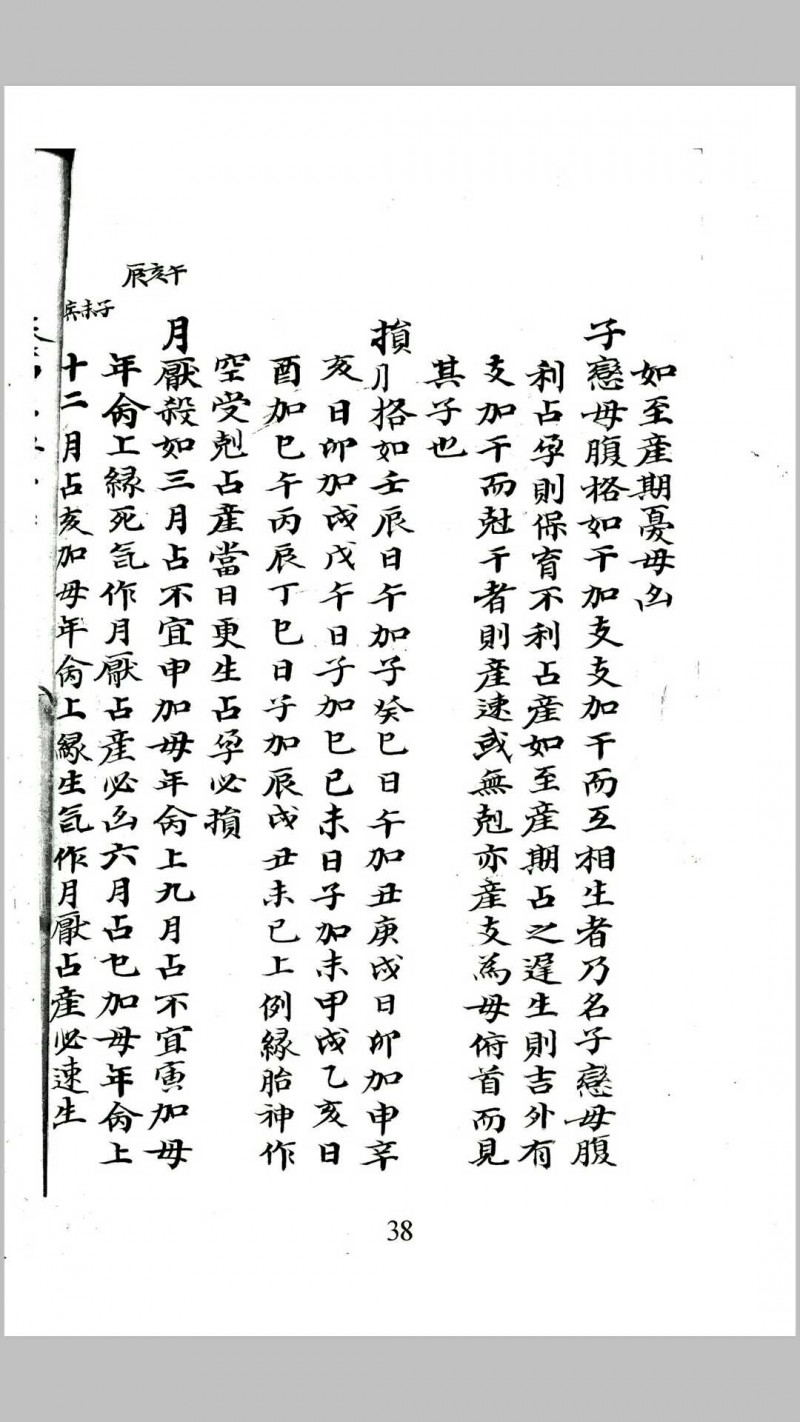 如至産期憂母凶
子戀母腹格如干加支支加干而互相生者乃名子戀母腹
利占孕則保育不利占産如至産期占之遲生則吉外有
支加干而尅干者則産速或無尅亦産支為母俯首而見
其子也
損格如壬辰日午加子癸巳日午加丑庚戌日卯加申辛
亥日卯加戌戊午日子加巳己未日子加未甲戌乙亥日
酉加巳午丙辰丁巳日子加辰戌丑未已上例緣胎神作
空受尅占産當日更生占孕必損
辰亥午
月厭殺如三月占不宜申加母年命上九月占不宜寅加母
年命上緣死氣作月厭占産必凶六月占巳加母年命上
未子
十二月占亥加母年命上緣生氣作月厭占産必速生
38